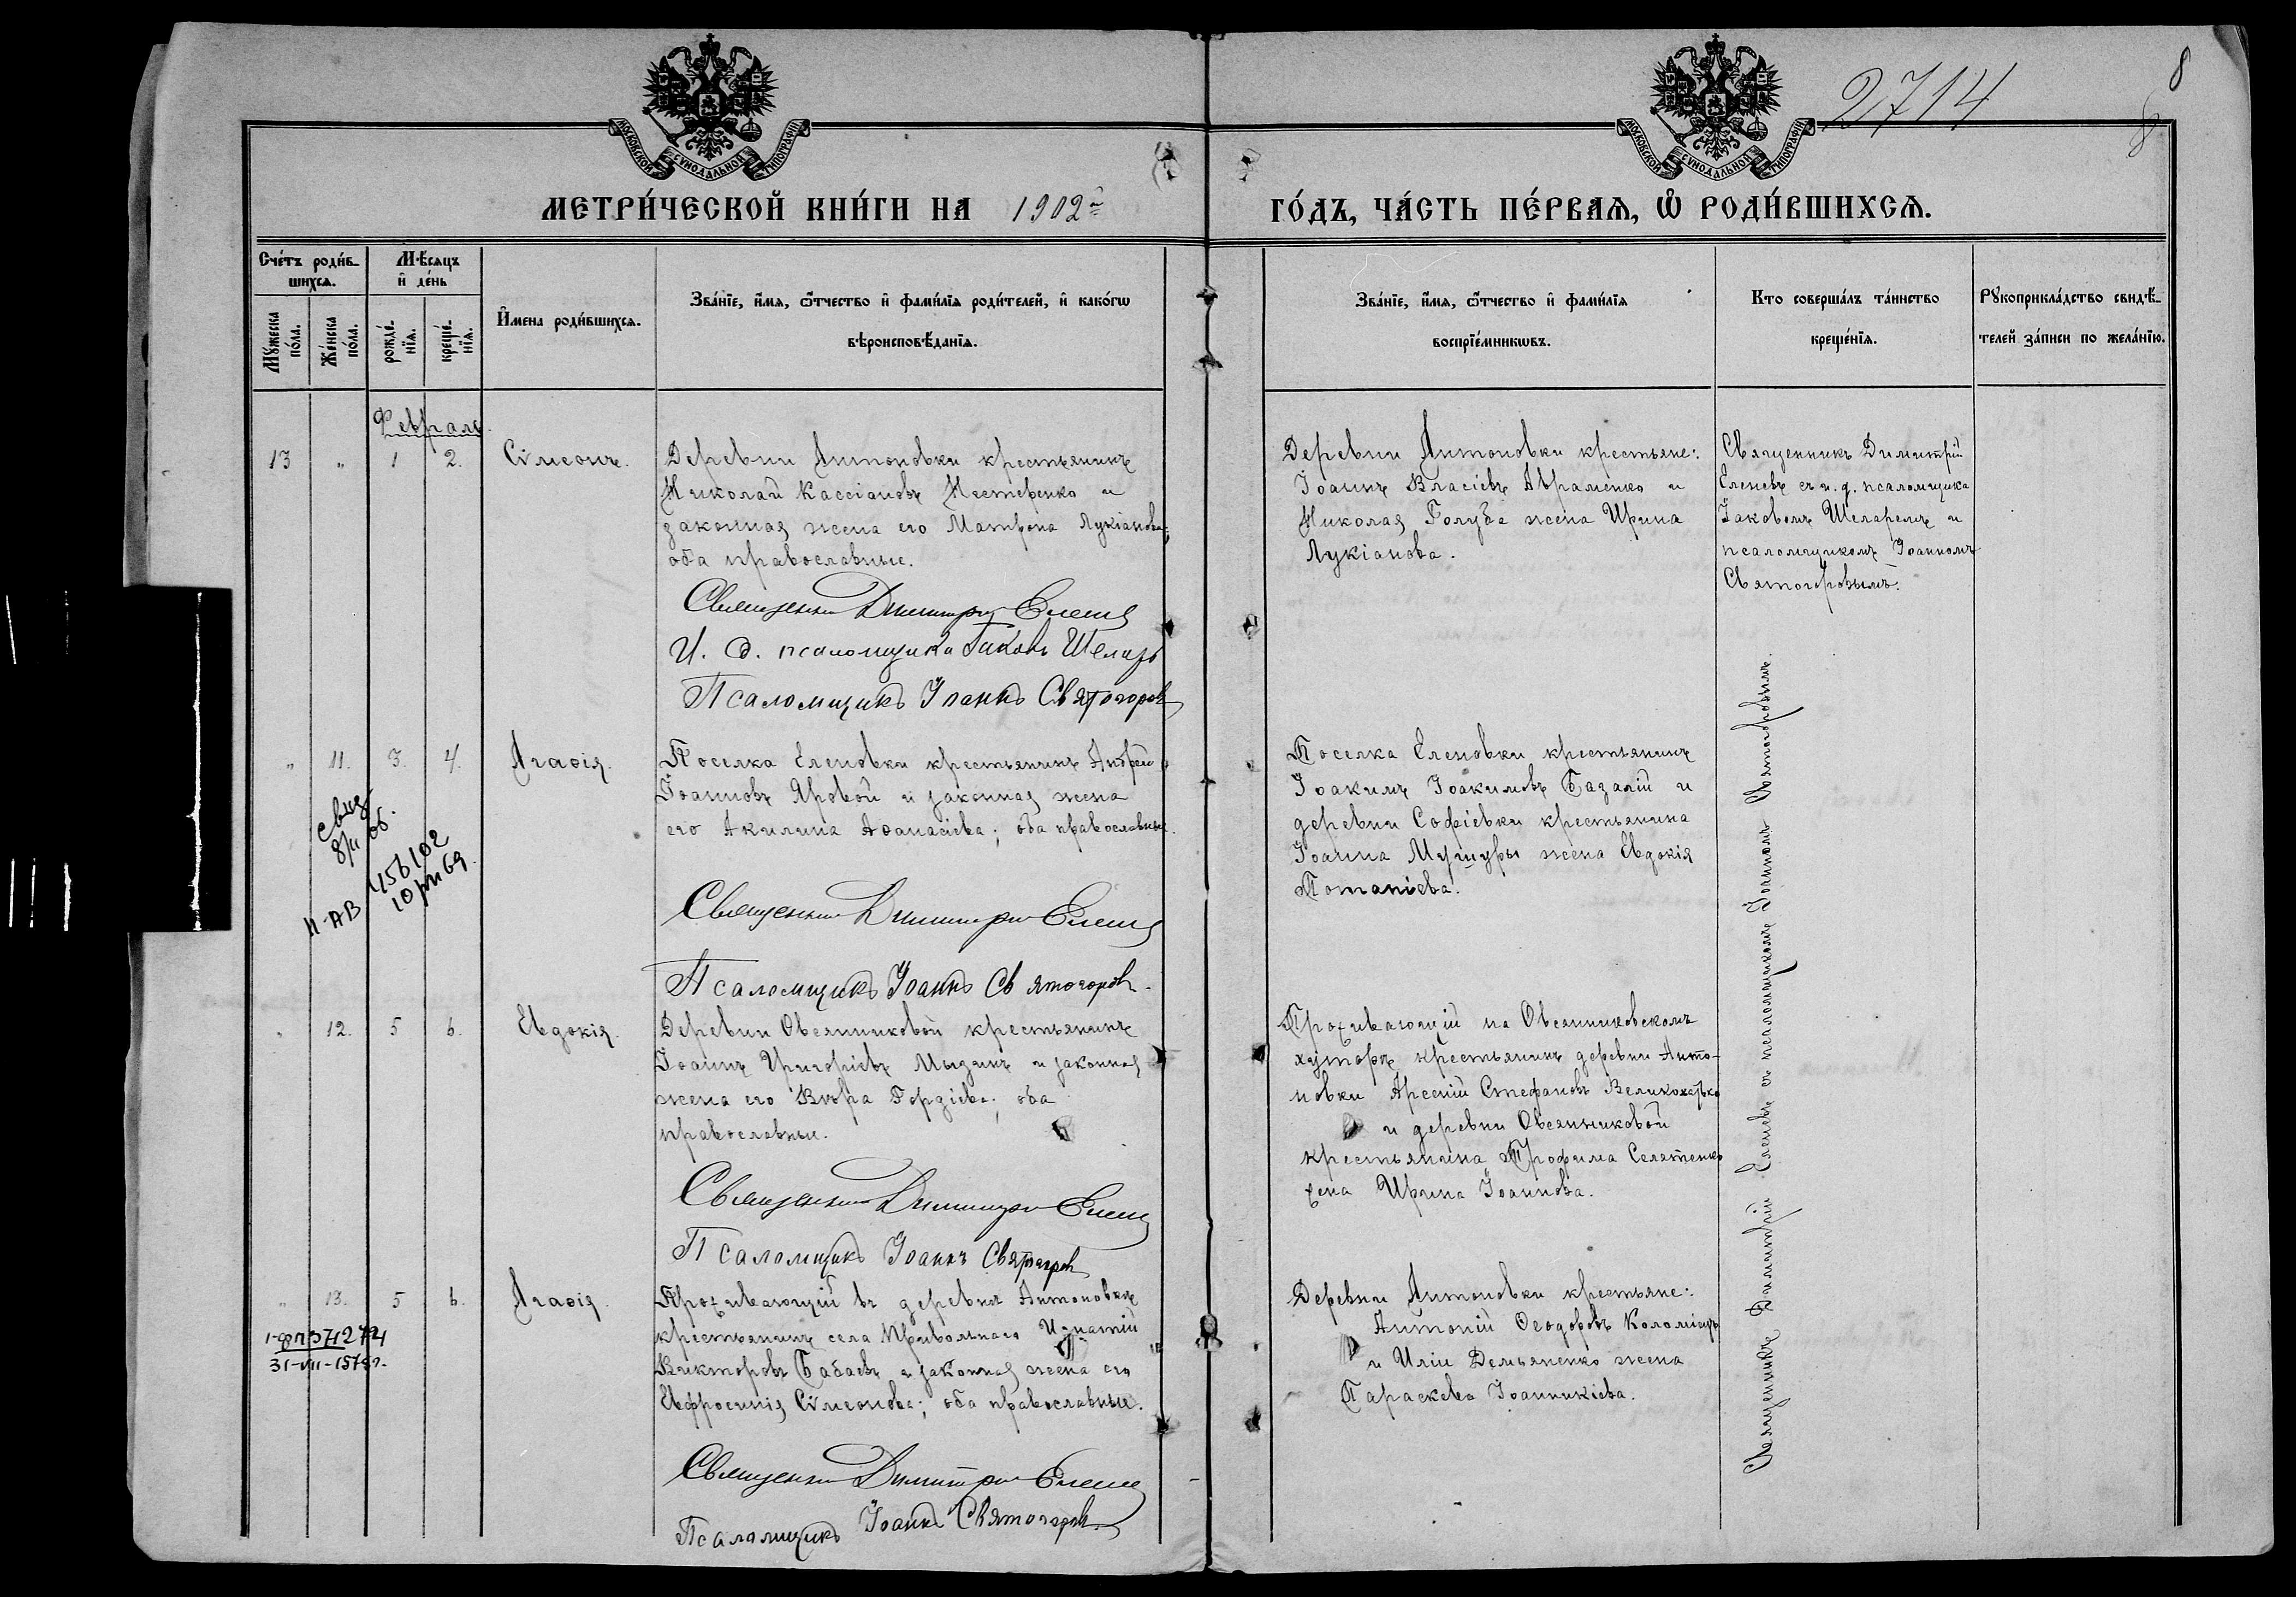 2714
8
МОСКОВСКОЙ СѴНОДАЛЬНОЙ ТИПОГРАФІИ
МОСКОВСКОЙ СѴНОДАЛЬНОЙ ТИПОГРАФІИ
МЕТРИ́ЧЕСКОЙ КНИ́ГИ НА 1902 ГО́ДЪ, ЧА́СТЬ ПЕ́РВАЯ, Ѡ҆ РОДИ́ВШИХСЯ.
Сче́тъ роди́в-
шихся.
Мꙋ́жеска по́ла.
Же́нска по́ла.
Мѣ́сяцъ
и҆ де́нь
рожде́-
нїя.
креще́-
нїя.
И҆мена роди́вшихся.
Зва́нїе, и҆́мя, ѻ҆́тчество и҆ фами́лїя роди́телей, и҆ како́гѡ
вѣроисповѣ́данїя.
Зва́нїе, и҆́мя, ѻ҆́тчество и҆ фами́лїя
воспрїе́мникѡвъ.
Кто соверша́лъ та́инство
креще́нїя.
Рꙋкоприкла́дство свидѣ́-
телей за́писи по жела́нїю.
Февраль.
13 " 1 2. Сѵмеонъ.
Деревни Антоновки крестьянинъ
Николай Кассіановъ Нестеренко и
законная жена его Матрона Лукіанова;
оба православные.
Священникъ Димитрій Еленевъ
И. д. псаломщика Іаковъ Шеларь
Псаломщикъ Іоаннъ Святогоровъ
Деревни Антоновки крестьяне:
Іоаннъ Власіевъ Авраменко и
Николая Голуба жена Ирина
Лукіанова.
Священникъ Димитрій
Еленевъ съ и. д. псаломщика
Іаковомъ Шеларемъ и
псаломщикомъ Іоанномъ
Святогоровымъ.
" 11. 3. 4. Агаѳія.
Поселка Еленовки крестьянинъ Андрей
Іоанновъ Яровой и законная жена
его Акилина Аѳанасіева; оба православные.
Священникъ Димитрій Еленевъ
Псаломщикъ Іоаннъ Святогоровъ.
Поселка Еленовки крестьянинъ
Іоакимъ Іоакимовъ Базалій и
деревни Софіевки крестьянина
Іоанна жена Евдокія
Потапіева.
свид
II-АВ
456102
" 12. 5 6. Евдокія.
Деревни Овсянниковой крестьянинъ
Іоаннъ Григоріевъ и законная
жена его Вѣра Гордіева; оба
православные.
Священникъ Димитрій Еленевъ
Псаломщикъ Іоаннъ Святогоровъ
Проживающій на Овсянниковскомъ
хуторѣ крестьянинъ деревни Анто-
новки Арсеній Стефановъ
и деревни Овсянниковой
крестьянина Трофима
жена Ирина Іоаннова.
" 13. 5 6. Агаѳія.
Проживающій въ деревнѣ Антоновкѣ
крестьянинъ села Привольнаго Игнатій
Викторовъ Бабаевъ и законная жена его
Евфросинія Сѵмеонова; оба православные.
Священникъ Димитрій Еленевъ
Псаломщикъ Іоаннъ Святогоровъ
Деревни Антоновки крестьяне:
Антоній Ѳеодоровъ Коломіецъ
и Иліи Демьяненко жена
Параскева Іоанникіева.
Священникъ Димитрій Еленевъ съ псаломщикомъ Іоанномъ Святогоровымъ.